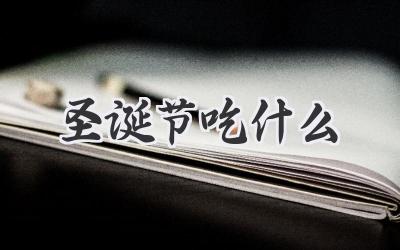 圣诞节吃什么